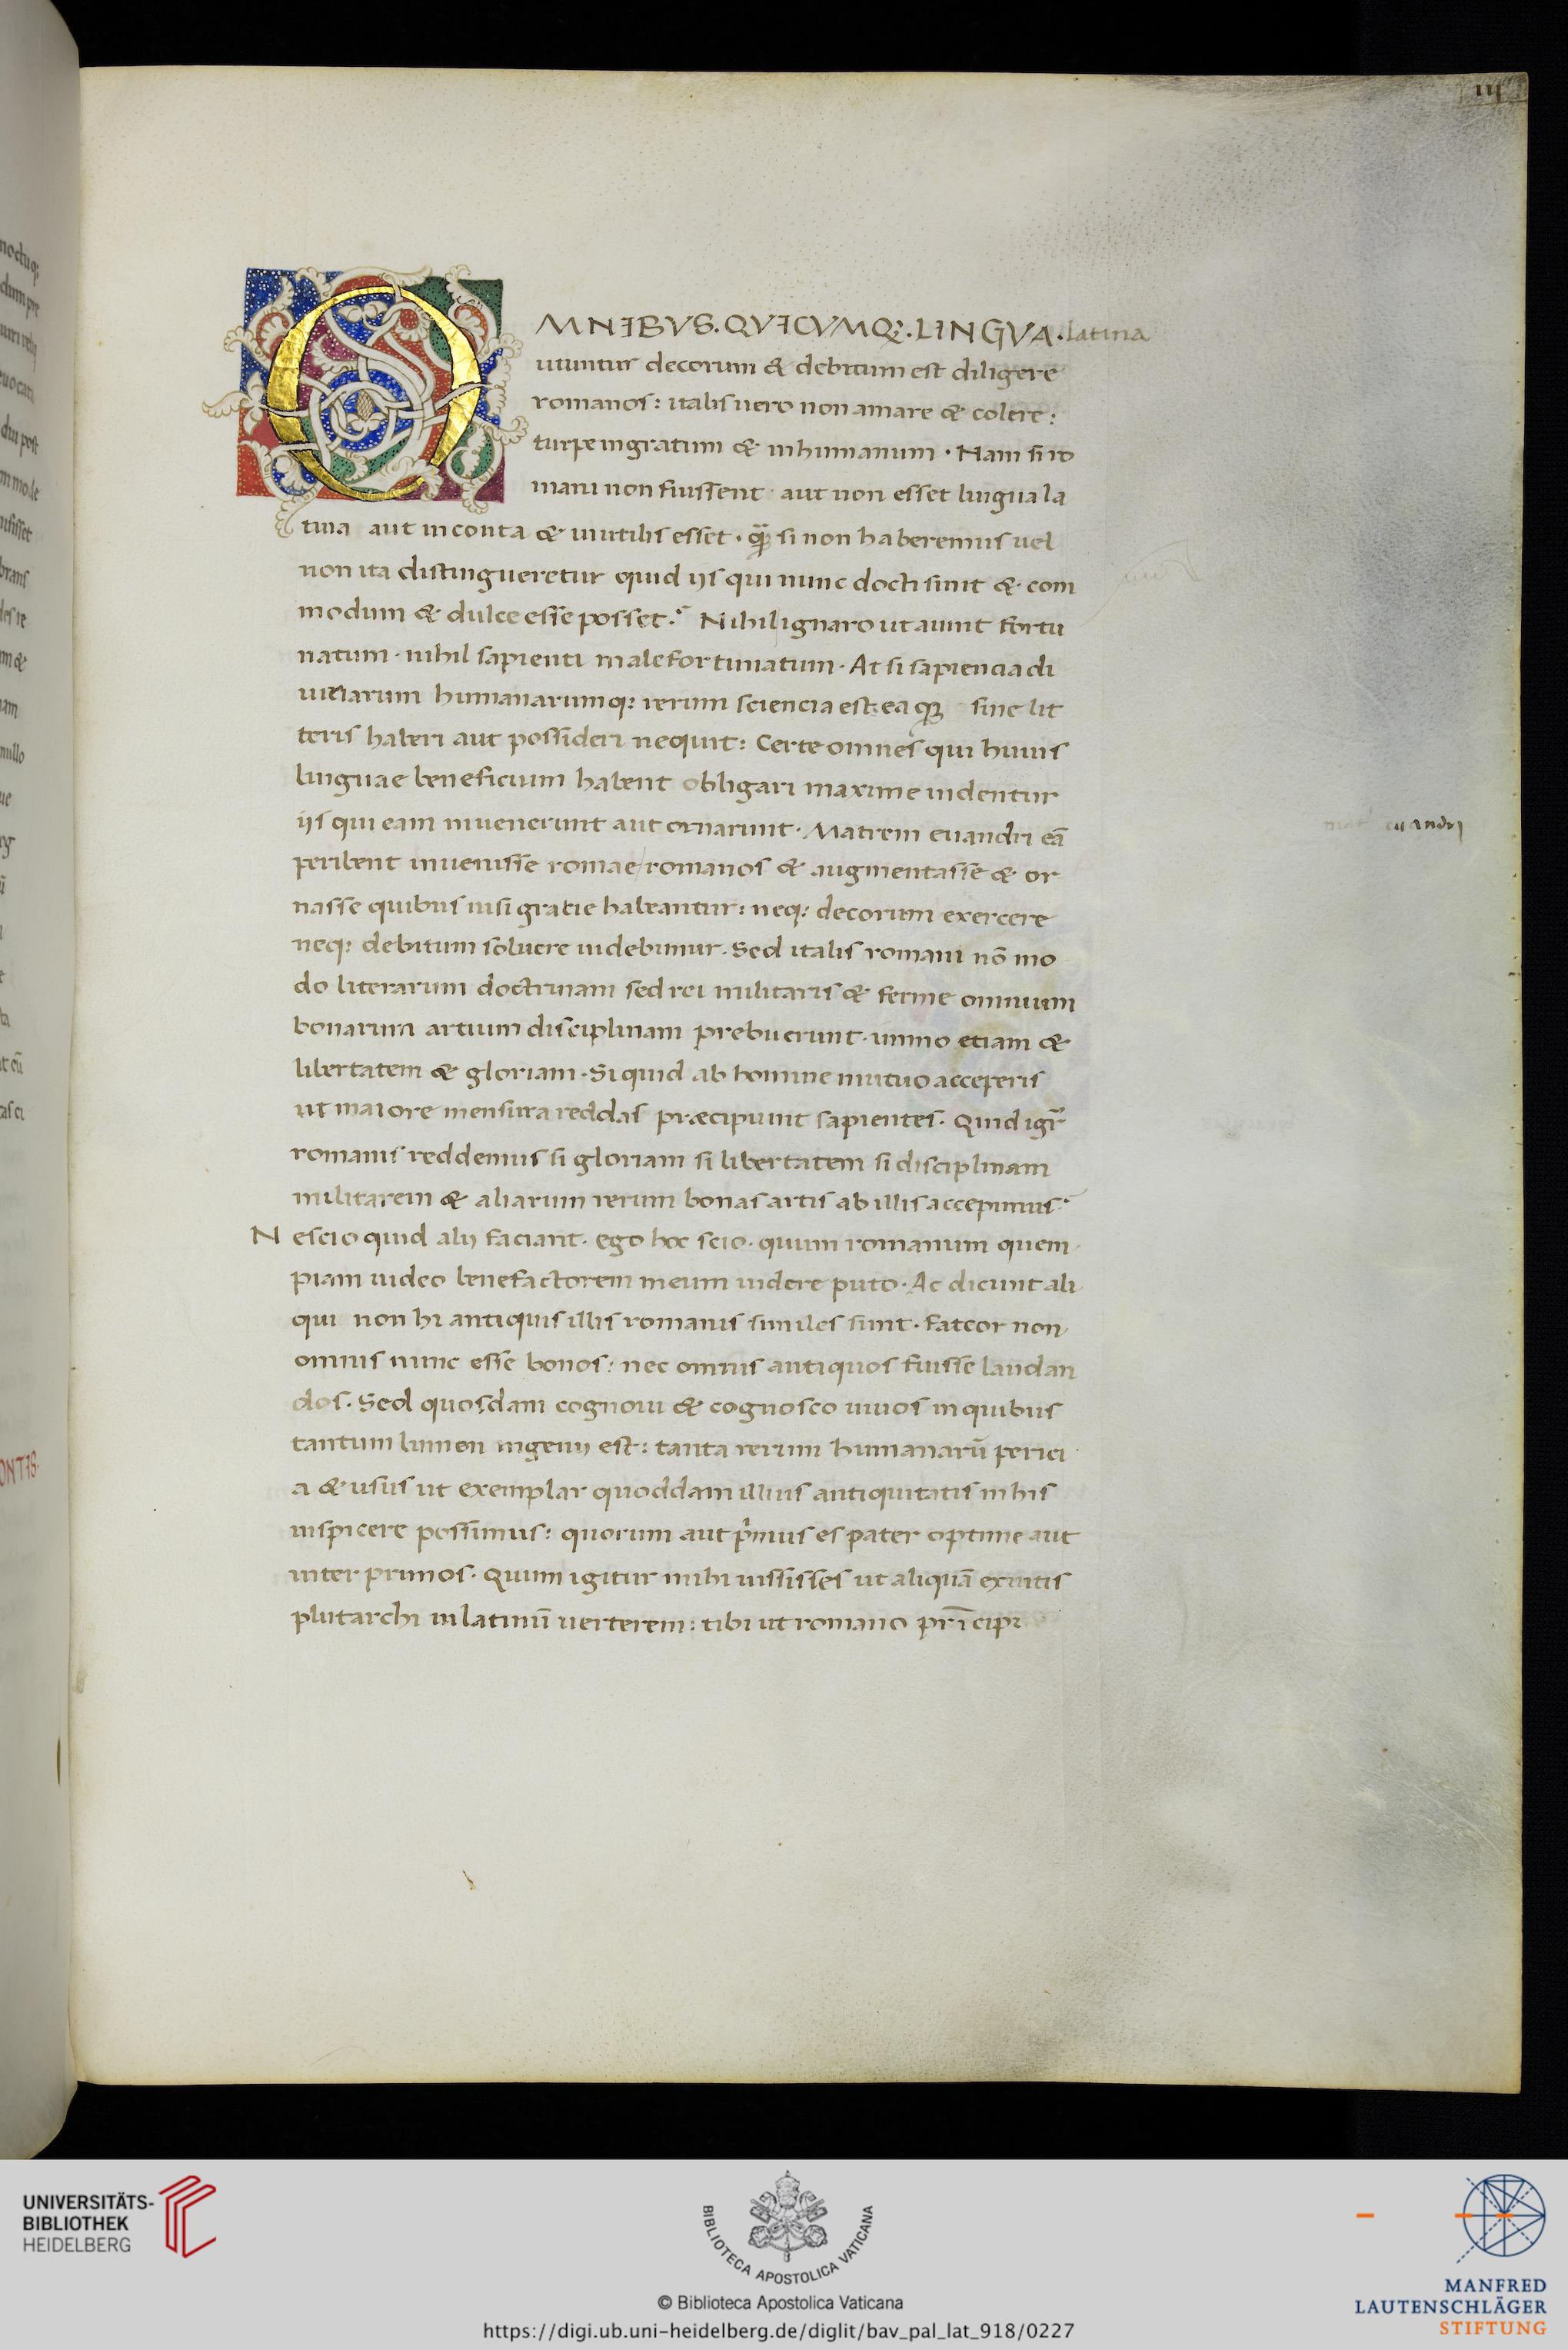 OMNIBVS. QVICVMQ:. LINGVA. latina
utuntur decorum & debitum est diligere
romanos: italis uero non amare & colere:
turpe ingratum & inhumanum. Nam si ro
mani non fuissent aut non esset lingua la
tina aut inconta & inutilis esset. qua si non haberemus uel
non ita distingueretur quid ijs qui nunc docti sunt & com
modum & dulce esse posset. Nihil ignaro ut aiunt fortu
natum. nihil sapienti malefortunatum. At si sapiencia di
uinarum humanarumq: rerum sciencia est: ea sine lit
teris haberi aut possideri nequit: Certe omnes qui huius
linguae beneficium habent obligari maxime uidentur
ijs qui eam inuenerunt aut ornarunt. Matrem euandri eā
peribent inuenisse romae romanos & augmentasse & or
nasse quibus nisi gratie habeantur: neq: decorum exercere
neq: debitum soluere uidebimur. Sed italis romani nō mo
do literarum doctrinam sed rei militaris & ferme omnium
bonarum artium disciplinam prebuerunt. immo etiam &
libertatem & gloriam. Si quid ab homine mutuo acceperis
ut maiore mensura reddas præcipiunt sapientes. Quid igr̄
romanis reddemus si gloriam si libertatem si disciplinam
militarem & aliarum rerum bonas artis ab illis accepimus
Nescio quid alij faciant. ego hoc scio. quum romanum quem
piam uideo benefactorem meum uidere puto. Ac dicunt ali
qui non hi antiquis illis romanis similes sunt. fateor non
omnis nunc esse bonos: nec omnis antiquos fuisse laudan
dos. Sed quosdam cognoui & cognosco uiuos in quibus
tantum lumen ingenij est: tanta rerum humanarū perici
a & usus ut exemplar quoddam illius antiquitatis in his
inspicere possimus: quorum aut p̄mus es pater optime aut
inter primos. Quum igitur mihi iussisses ut aliquā ex uitis
plutarchi in latinū uerterem: tibi ut romano prīcipi
euandri
UNIVERSITÄTS-
BIBLIOTHEK
HEIDELBERG
BIBLIOTECA APOSTOLICA VATICANA
© Biblioteca Apostolica Vaticana
https://digi.ub.uni-heidelberg.de/diglit/bav_pal_lat_918/0227
MANFRED
LAUTENSCHLÄGER
STIFTUNG